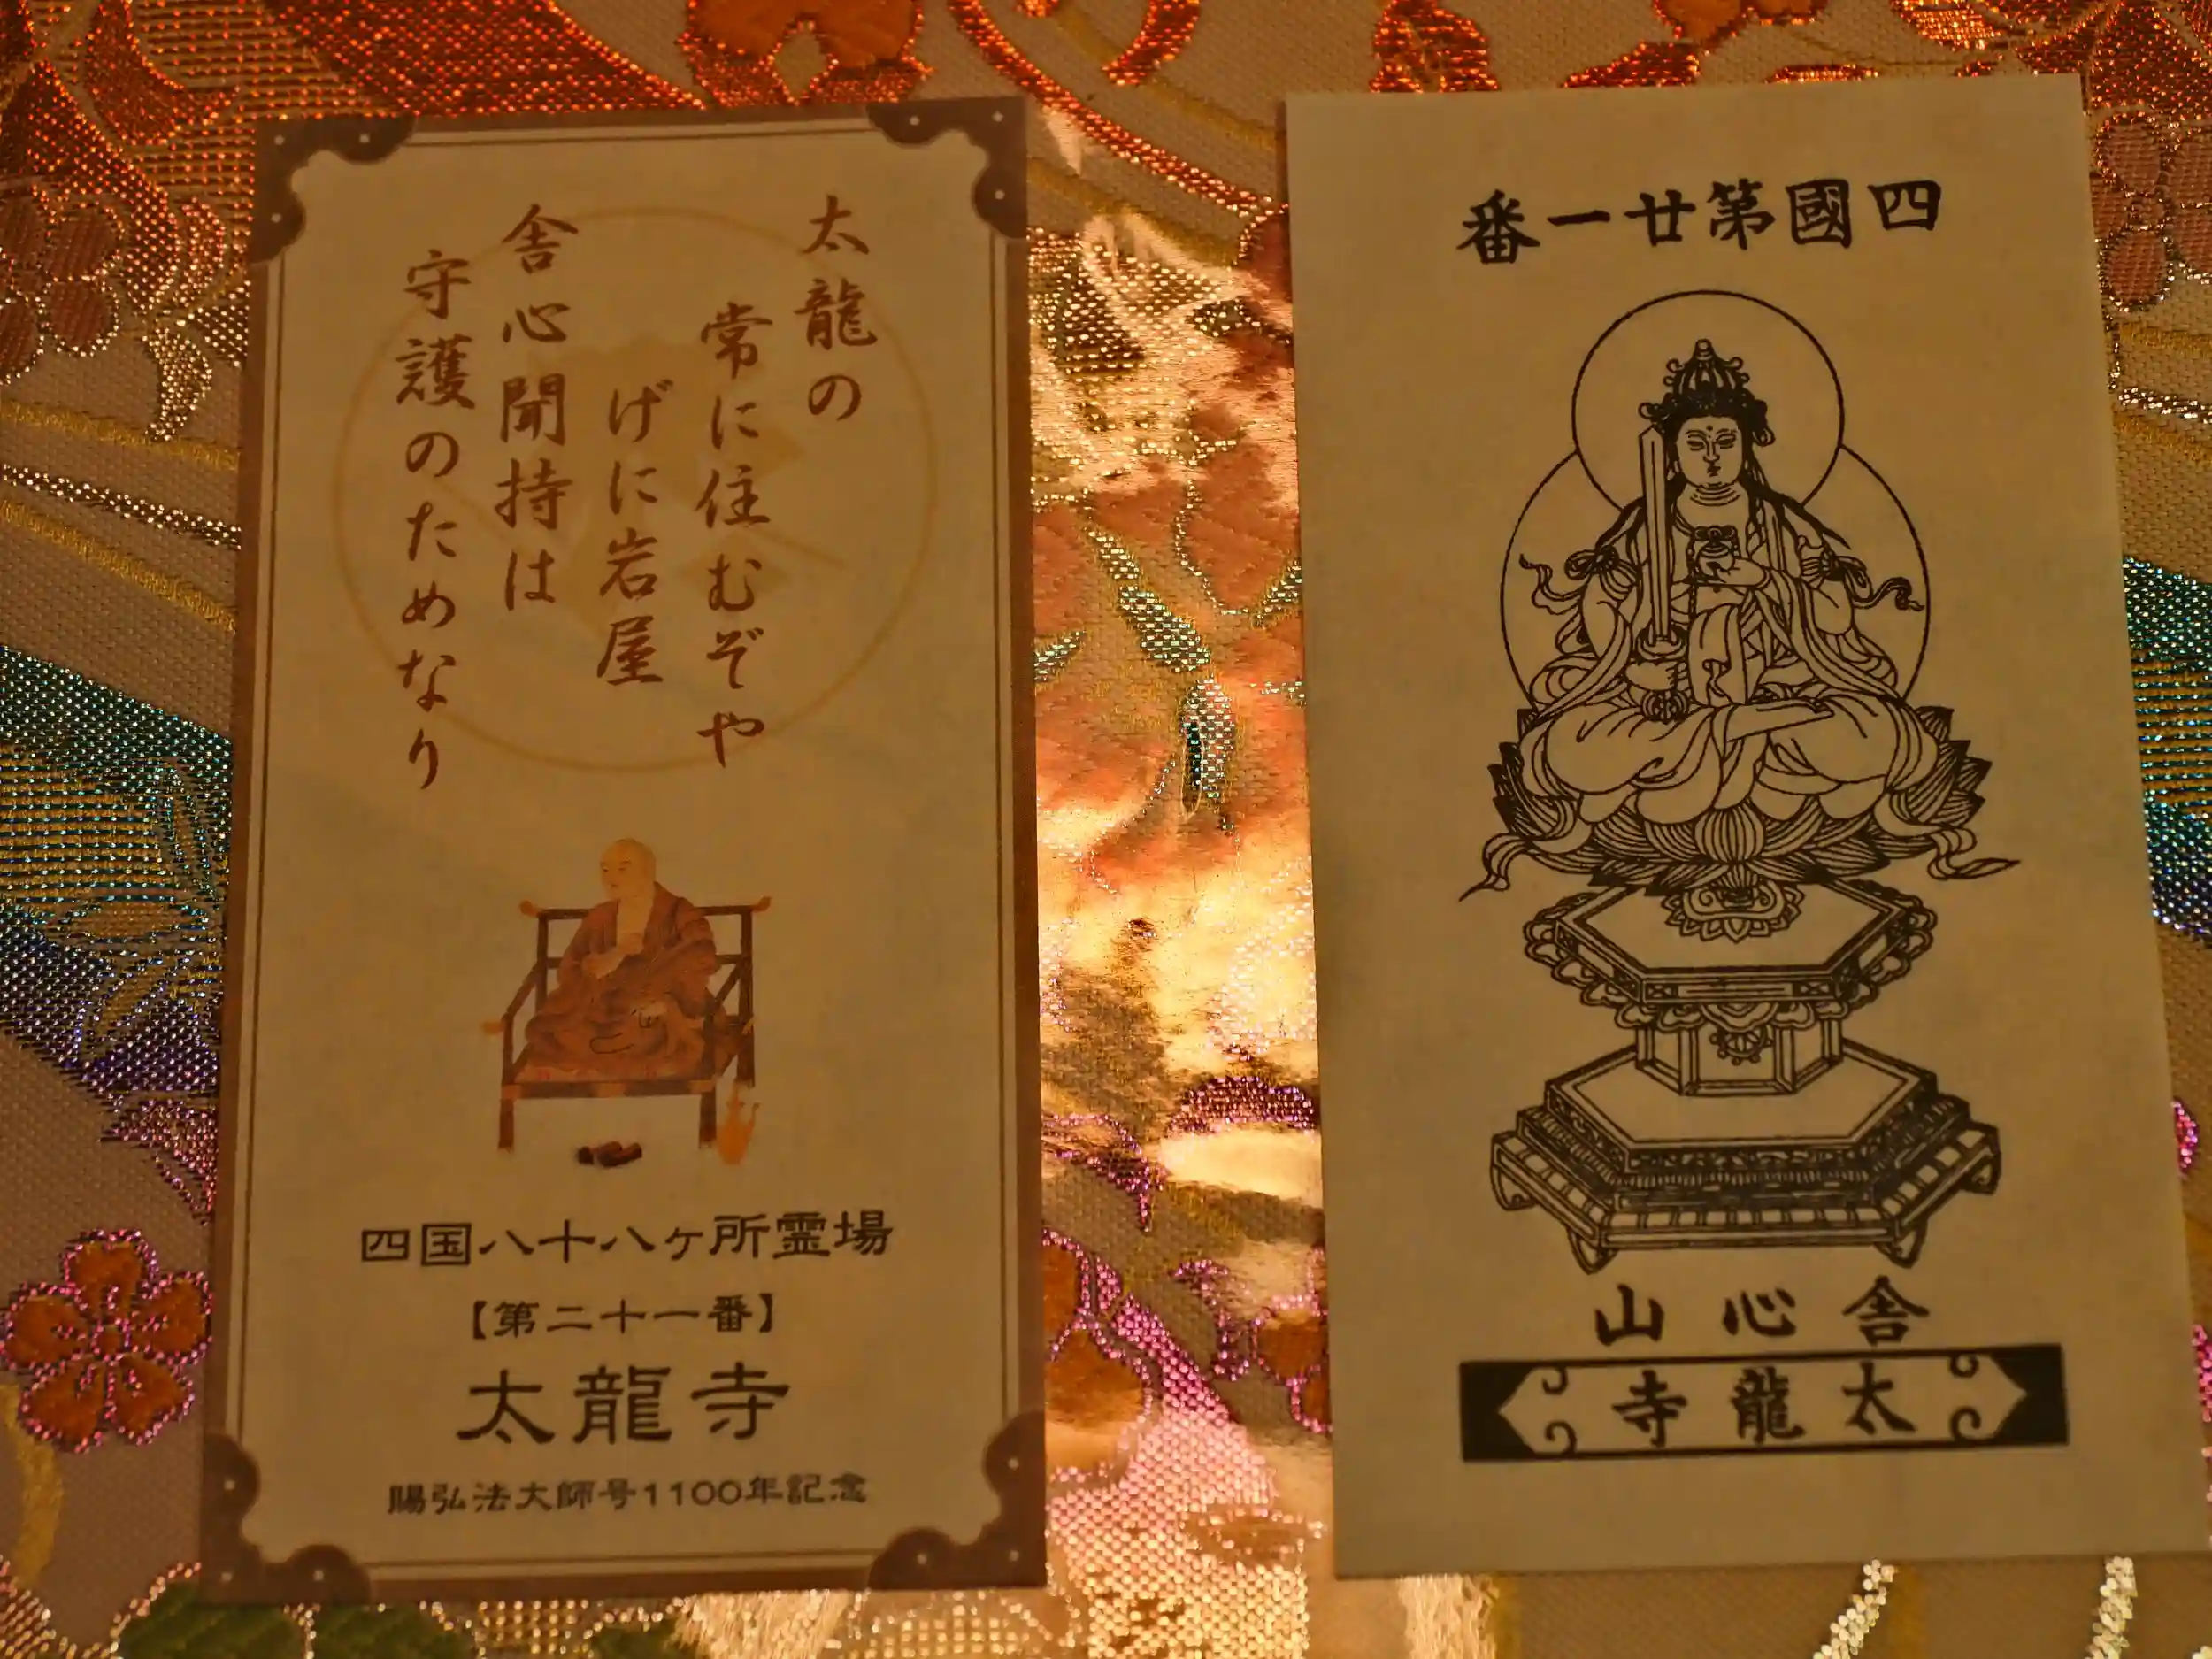 太龍の
常に住むぞや
げに岩屋
舎心聞持は
守護のためなり
四国八十八ヶ所霊場
【第二十一番】
太龍寺
賜弘法大師号1100年記念
四國第廿一番
舎心山
太龍寺